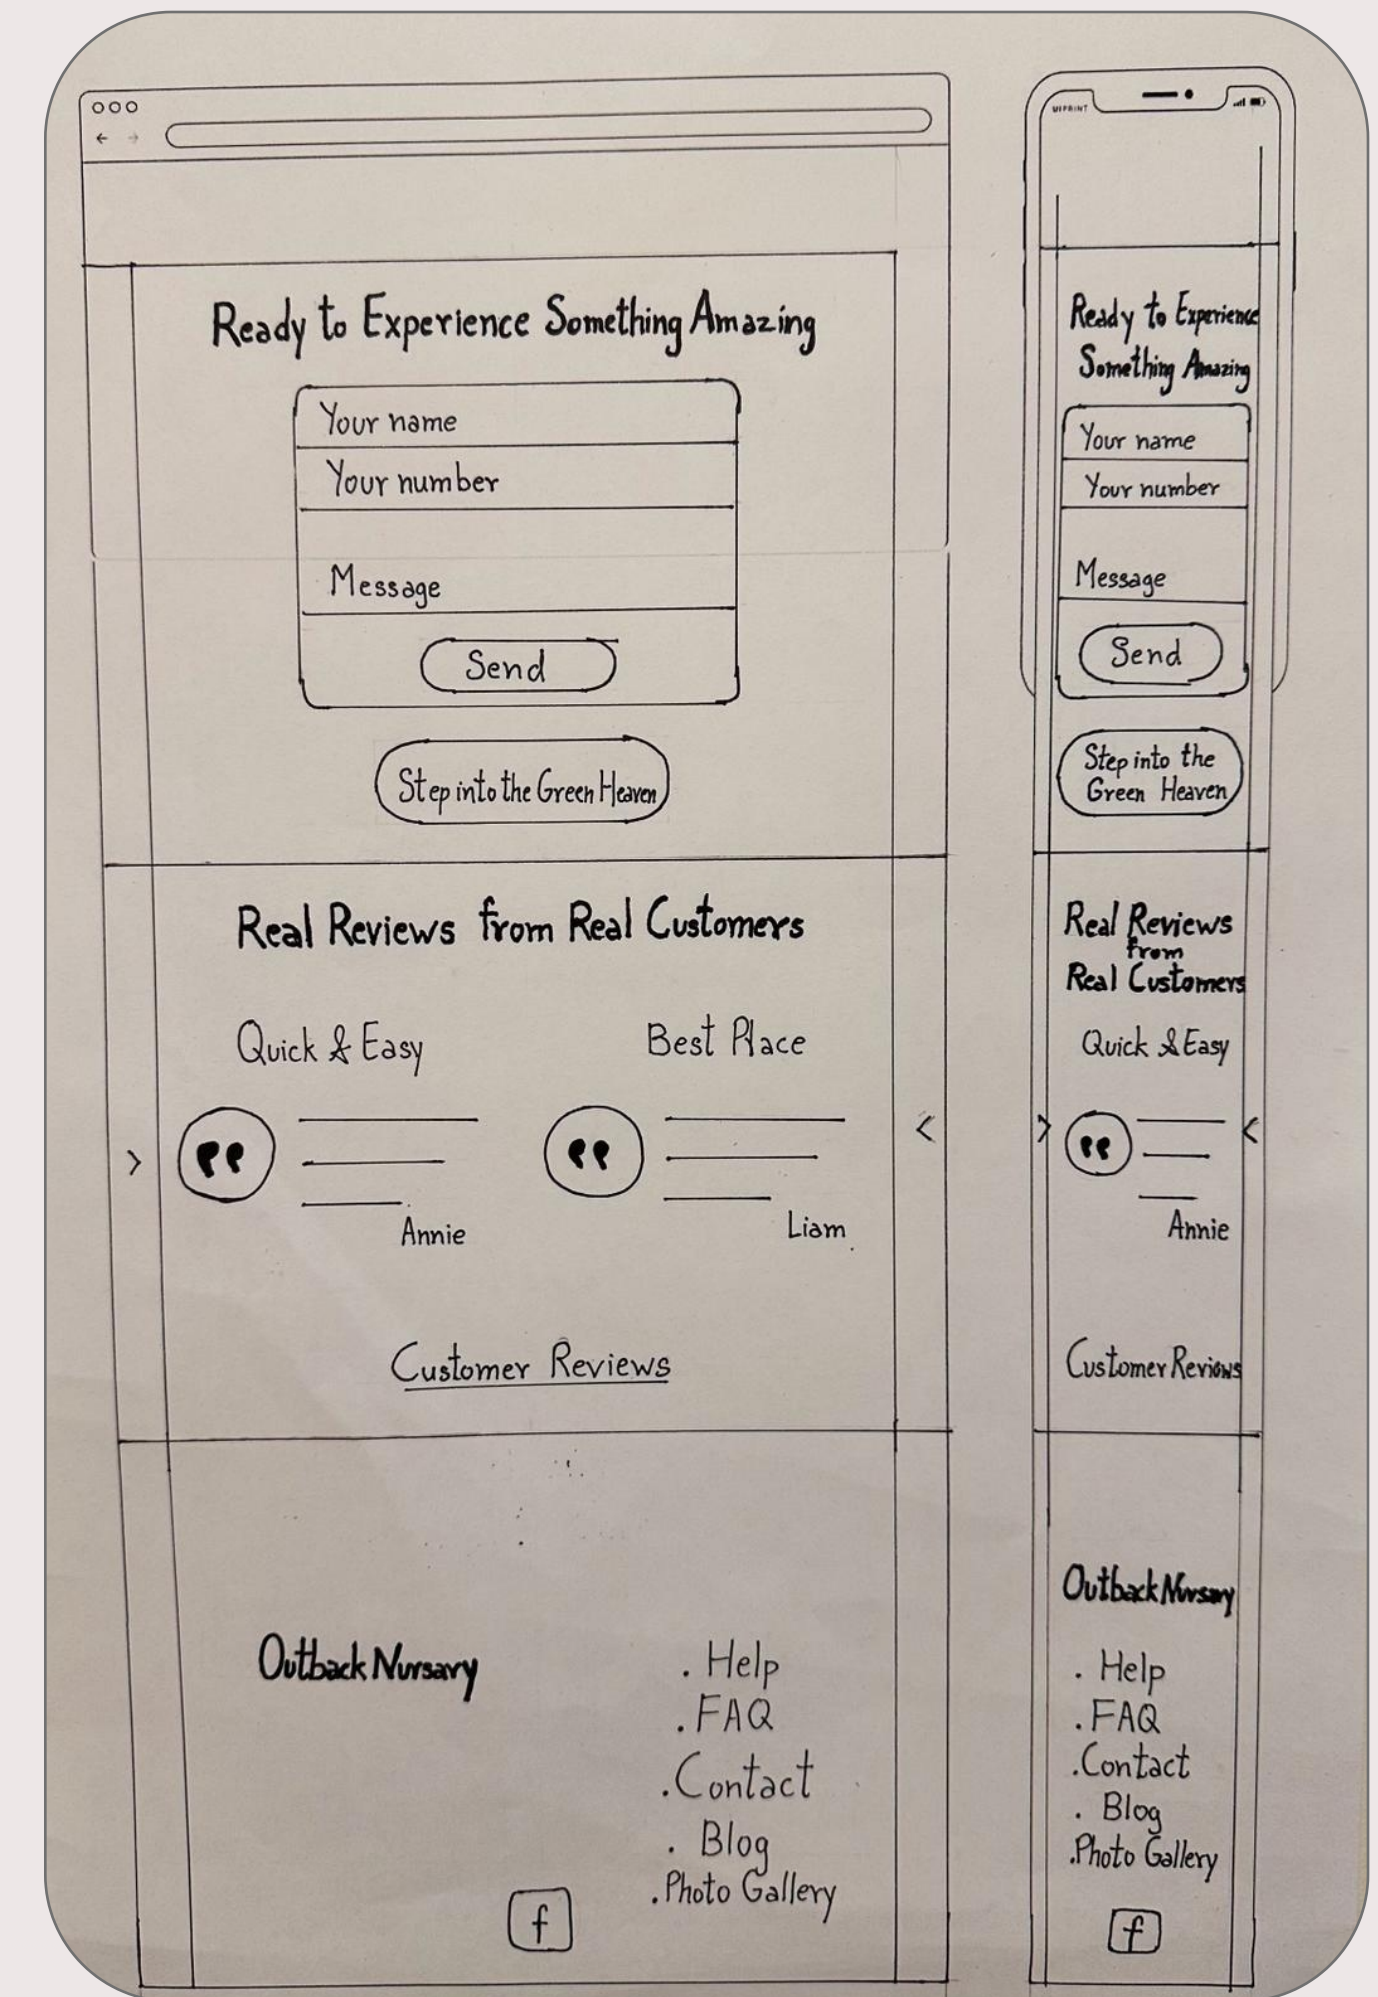 Ready to Experience Something Amazing
Your name
Your number
Message
Send
Step into the Green Heaven
Real Reviews from Real Customers
Quick & Easy
Best Place
Annie
Liam
Customer Reviews
Outback Nursary
. Help
. FAQ
. Contact
. Blog
. Photo Gallery
f
UIPRINT
Ready to Experience
Something Amazing
Your name
Your number
Message
Send
Step into the
Green Heaven
Real Reviews
from
Real Customers
Quick & Easy
Annie
Customer Reviews
Outback Nursary
. Help
. FAQ
. Contact
. Blog
. Photo Gallery
f